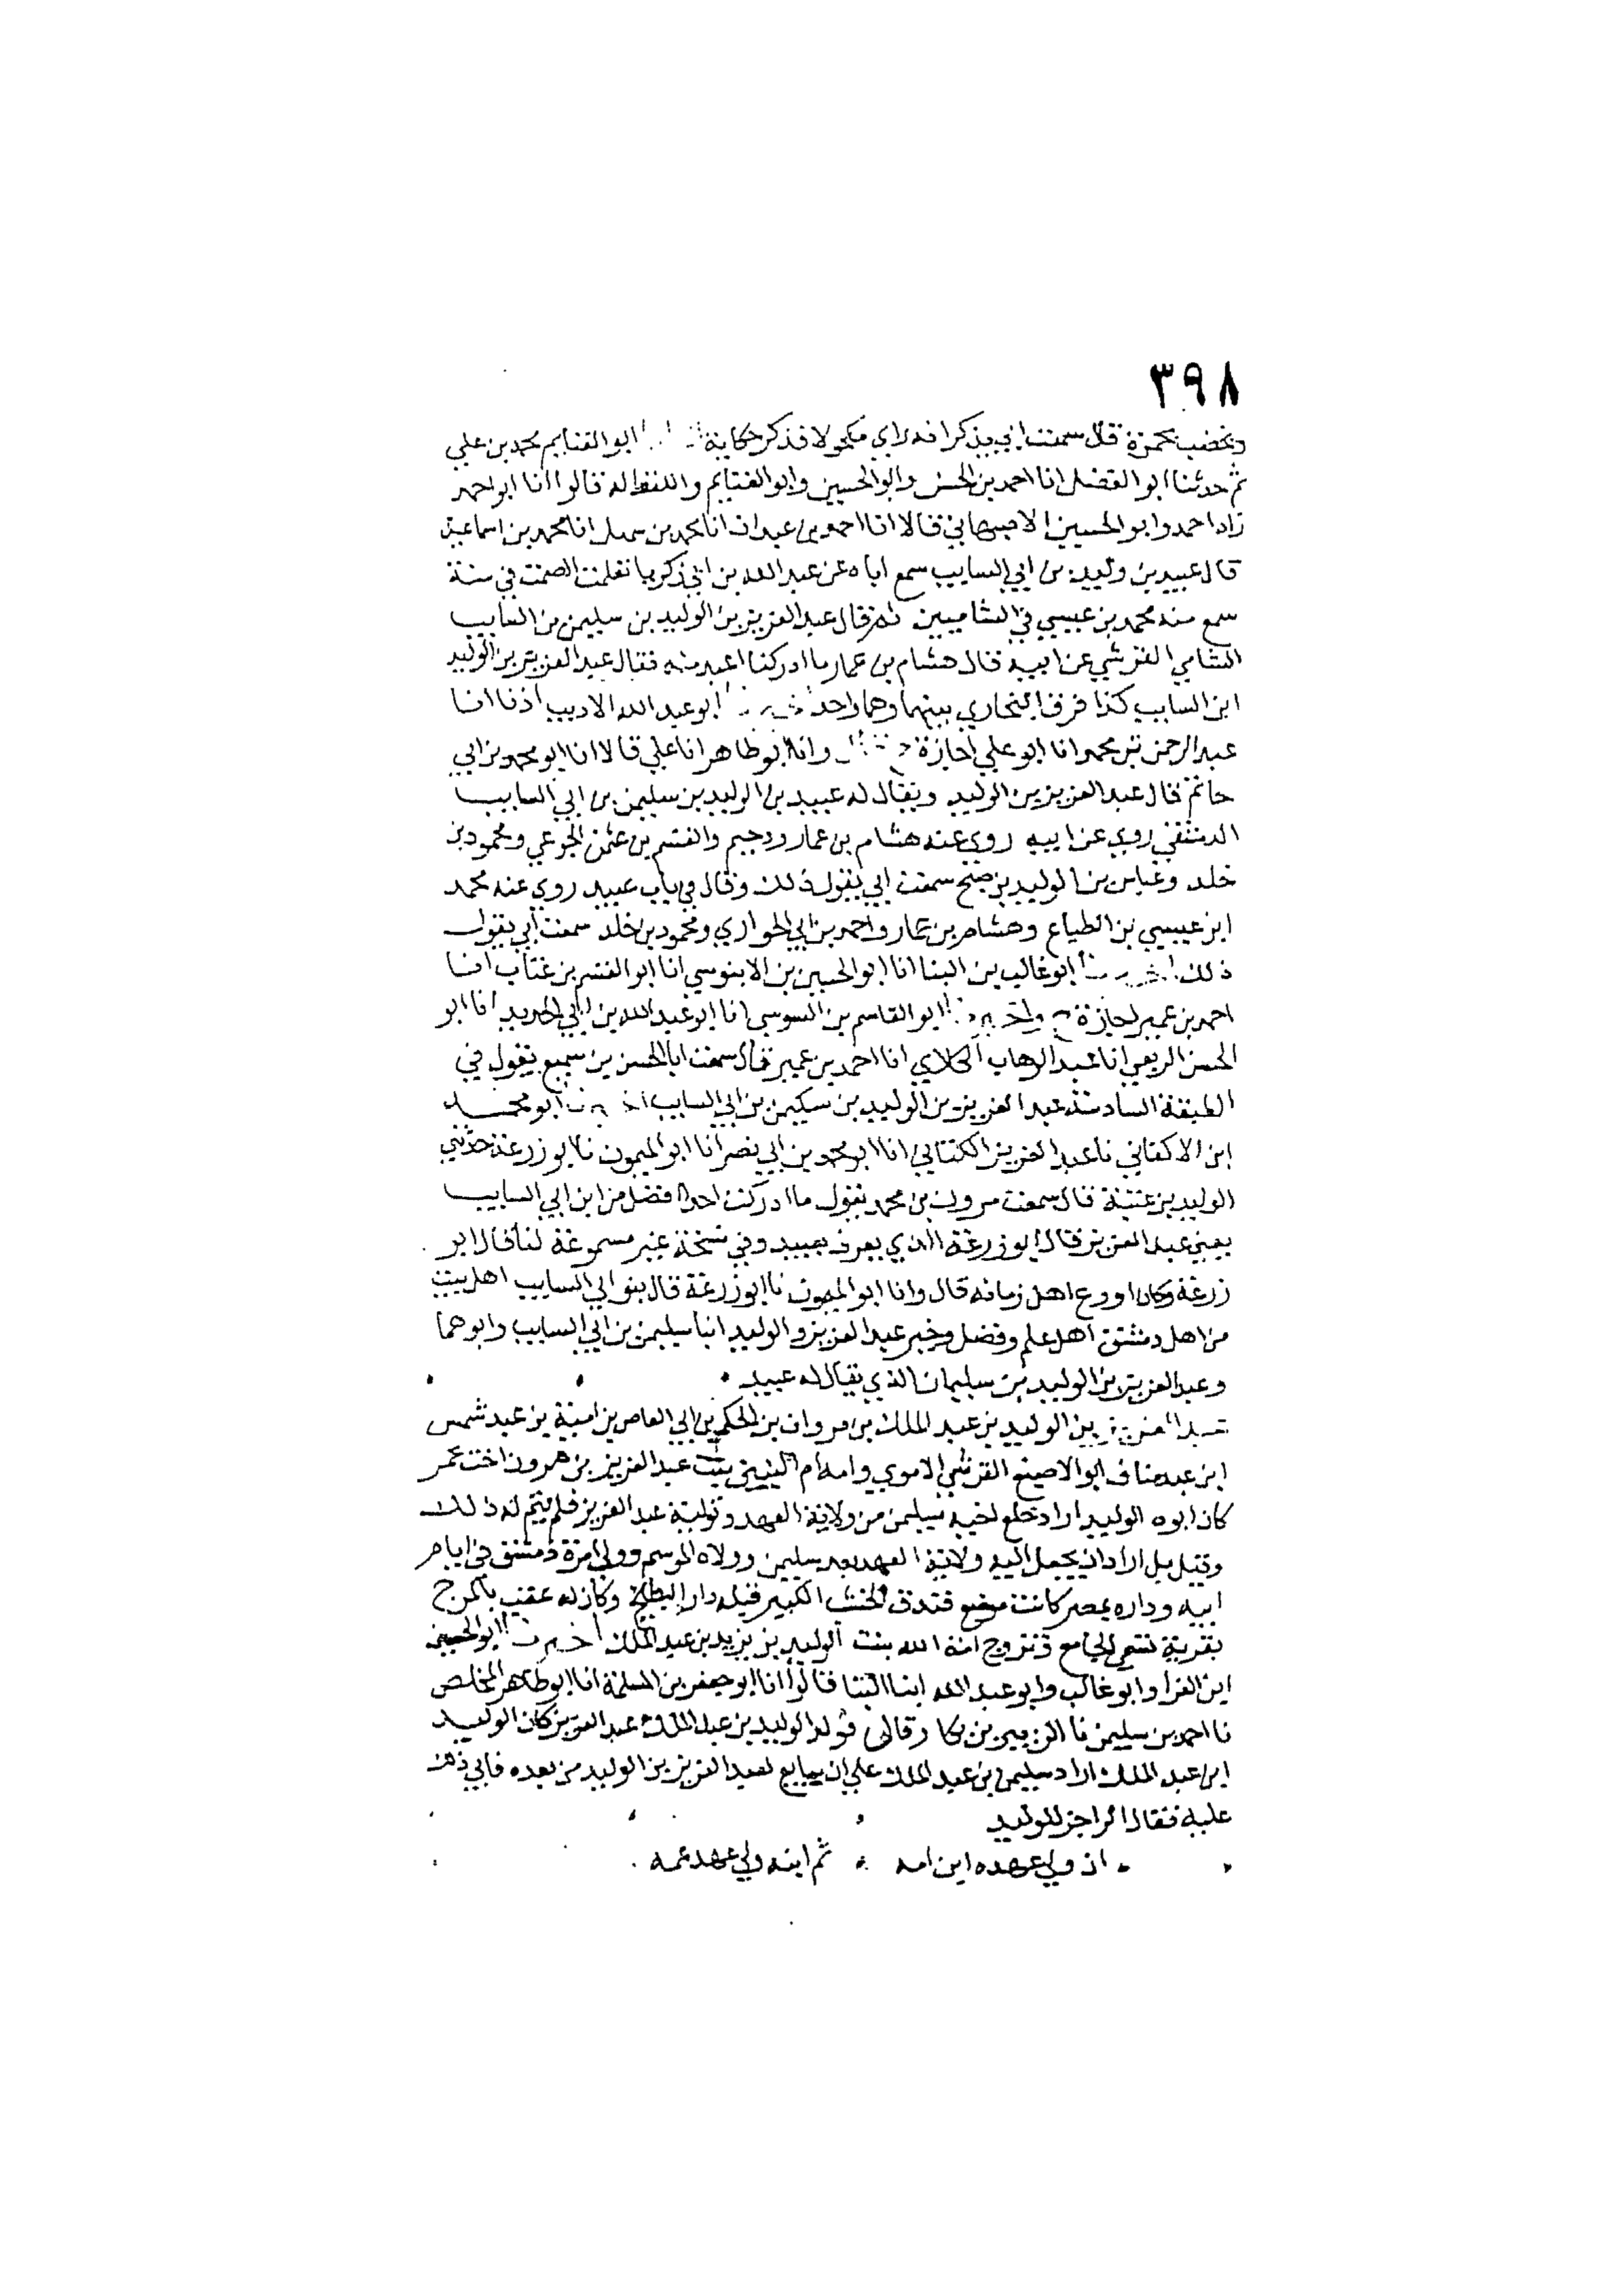 ٣٩٨
ويخضب بحمرة قال سمعت ابي يذكر انه راي مكحولا فذكر حكاية ابو الغنايم محمد بن علي
ثم حدثنا ابو الفضل انا احمد بن الحسن وابو الحسين وابو الغنايم واللفظ له قالوا انا ابو احمد
زاد احمد وابو الحسين الاصبهاني قالا انا احمد بن عبدان انا محمد بن سهل انا محمد بن اسماعيل
قال عبيد بن وليد بن ابي السايب سمع اباه عن عبد الله بن ابي زكريا تعلمت الصمت في سنة
سمع منه محمد بن عيسي في الشاميين ثم قال عبد العزيز بن الوليد بن سليمن بن السايب
الشامي القرشي عن ابيه قال هشام بن عمار ما ادركنا اعبد منه فقال عبد العزيز بن الوليد
ابن السايب كذا فرق البخاري بينهما وهما واحد ابو عبد الله الاديب اذنا انا
عبد الرحمن بن محمد انا ابو علي اجازة وانا ابو طاهر انا علي قالا انا ابو محمد بن ابي
حاتم قال عبد العزيز بن الوليد ويقال له عبيد بن الوليد بن سليمن بن ابي السايب
الدمشقي روي عن ابيه روي عنه هشام بن عمار ودحيم والقسم بن عثمن الجوعي ومحمود بن
خلد وعباس بن الوليد بن صبح سمعت ابي يقول ذلك وقال في باب عبيد روي عنه محمد
ابن عيسي بن الطباع وهشام بن عمار واحمد بن ابي الحواري ومحمود بن خلد سمعت ابي يقول
ذلك ابو غالب بن البنا انا ابو الحسين بن الابنوسي انا ابو القسم بن عتاب انا
احمد بن عمير اجازة ابو القاسم بن السوسي انا ابو عبد الله بن ابي الحديد انا ابو
الحسن الربعي انا عبد الوهاب الكلابي انا احمد بن عمير قال سمعت ابا الحسن بن سميع يقول في
الطبقة السادسة عبد العزيز بن الوليد بن سليمن بن ابي السايب ابو محمد
ابن الاكفاني نا عبد العزيز الكتاني انا ابو محمد بن ابي نصر انا ابو الميمون نا ابو زرعة حدثني
الوليد بن عتبة قال سمعت مرون بن محمد يقول ما ادركت احدا افضل من ابن ابي السايب
يعني عبد العزيز قال ابو زرعة الذي يعرف بعبيد وفي نسخة غير مسموعة لنا قال ابو
زرعة وكان اورع اهل زمانه قال وانا ابو الميمون نا ابو زرعة قال بنو ابي السايب اهل بيت
من اهل دمشق اهل علم وفضل وخير عبد العزيز والوليد ابنا سليمن بن ابي السايب وابوهما
وعبد العزيز بن الوليد بن سليمان الذي يقال له عبيد
عبد العزيز بن الوليد بن عبد الملك بن مروان بن الحكم بن ابي العاص بن امية بن عبد شمس
ابن عبد مناف ابو الاصبغ القرشي الاموي وامه ام البنين بنت عبد العزيز بن مرون اخت عمر
كان ابوه الوليد اراد خلع اخيه سليمن من ولاية العهد وتولية عبد العزيز فلم يتم له ذلك
وقيل بل اراد ان يجعل اليه ولاية العهد بعد سليمن وولاه الموسم وولي امرة دمشق في ايام
ابيه وداره بمصر كانت موضع فندق الخشب الكبير قبله دار البطيخ وكان له عقب بالمرج
بقرية تسمي الجامع وتزوج امة الله بنت الوليد بن يزيد بن عبد الملك ابو الحسين
ابن الفرا وابو غالب وابو عبد الله ابنا البنا قالوا انا ابو جعفر بن المسلمة انا ابو طاهر المخلص
نا احمد بن سليمن نا الزبير بن بكار قال فولد الوليد بن عبد الملك عبد العزيز كان الوليد
ابن عبد الملك اراد سليمن بن عبد الملك علي ان يبايع لعبد العزيز بن الوليد من بعده فابي ذلك
عليه فقال الراجز للوليد
ان ولي عهده ابن امه ثم ابنه ولي عهد عمه